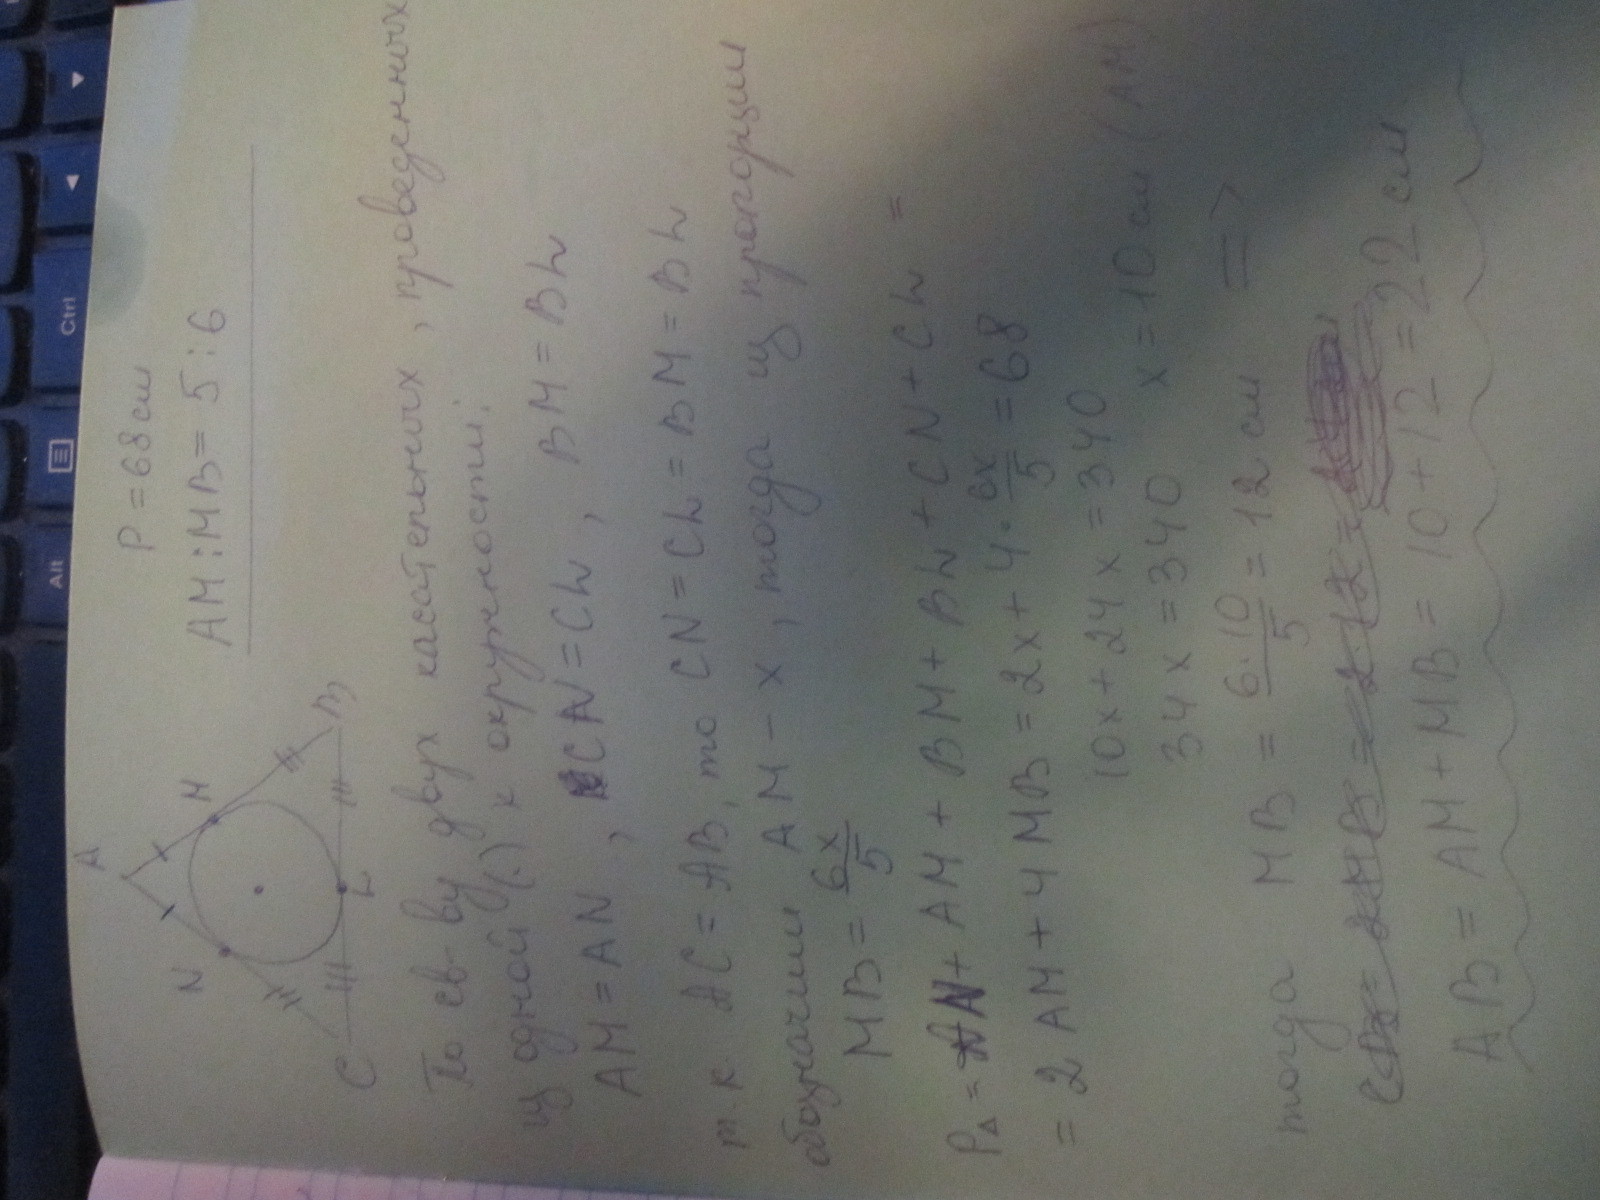 P = 68 см
AM : MB = 5 : 6
A
N
M
C
L
B
По св-ву двух касательных, проведенных
из одной (.) к окружности:
AM = AN, CN = CL, BM = BL
т.к. AC = AB, то CN = CL = BM = BL
обозначим AM - x, тогда из пропорции
MB = 6x/5
P△ = AN + AM + BM + BL + CN + CL =
= 2 AM + 4 MB = 2x + 4 · 6x/5 = 68
10x + 24x = 340
34x = 340
x = 10 см (AM)
тогда MB = 6·10/5 = 12 см =>
AB = AM + MB = 10 + 12 = 22 см
Alt
Ctrl